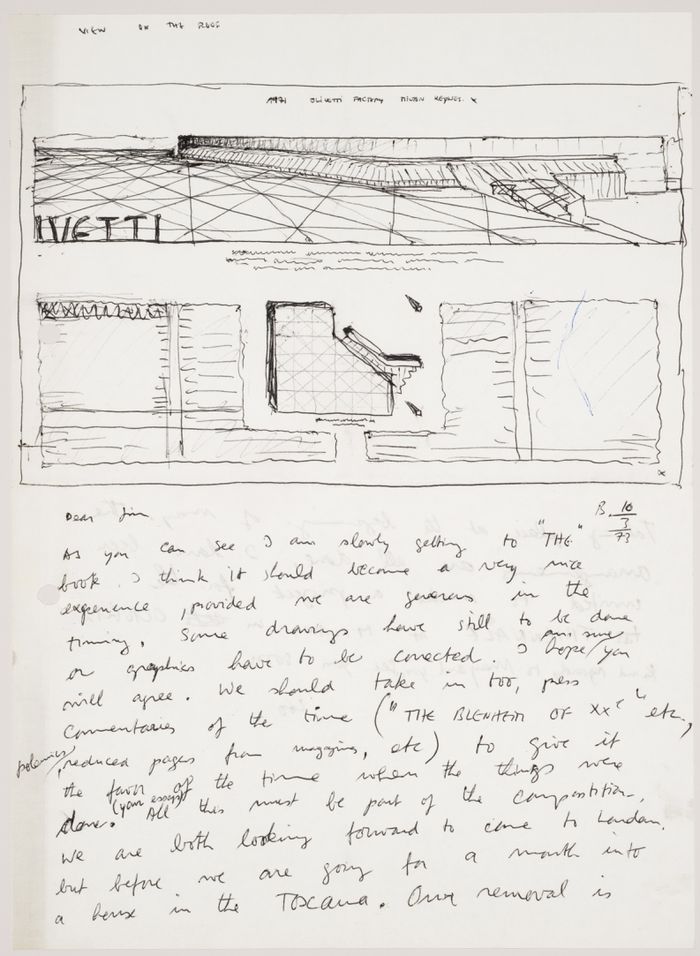 VIEW ON THE ROOF
1971 OLIVETTI FACTORY MILTON KEYNES. x
IVETTI
x
Dear Jim
B. 10
3
73
As you can see I am slowly getting to "THE"
book. I think it should become a very nice
experience, provided we are generous in the
timing. Some drawings have still to be done
or graphics have to be corrected. I hope / am sure you
will agree. We should take in too, press
commentaries of the time ("THE BLENHEIM OF XXc" etc,
polemics, reduced pages from magazins, etc) to give it
the favor of the time when the things were
done. (your essays) All this must be part of the composition.
We are both looking forward to come to London.
but before we are going for a month into
a house in the TOSCANA. Our removal is